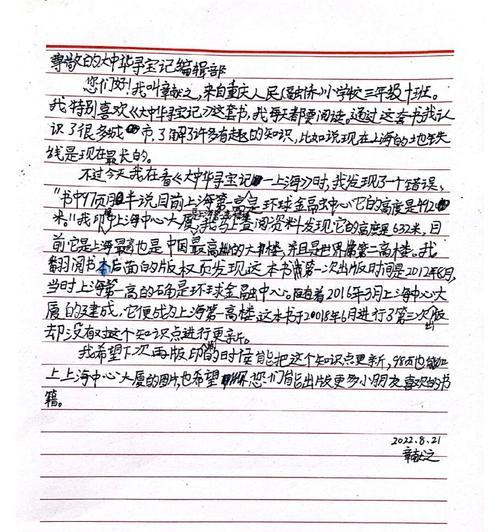 尊敬的大中华寻宝记编辑部
您们好!我叫章之,来自重庆人民(融侨)小学校三年级十班。
我特别喜欢《大中华寻宝记》这套书,我每天都要阅读。通过这套书我认
识了很多城市,了解了许多有趣的知识,比如说现在上海的地铁
线是现在最长的。
不过今天我在看《大中华寻宝记—上海》时,我发现了一个错误,
“书中97页说目前上海第一高是环球金融中心它的高度是492
米。”我印中上海中心大厦,我马上查阅资料发现,它的高度是632米,目
前它是上海最也是中国最高的大楼,并且是世界第二高楼。我
翻阅书本后面的版权页发现这本书第一次出版时间是2012年8月,
当时上海第一高的确是环球金融中心。随着2016年3月上海中心大
厦的建成,它便成为上海第一高楼这本书于2018年6月进行了第三次出版
却没有对这个知识点进行更新。
我希望下次再版印的时候能把这个知识点更新,98页也能加
上上海中心大厦的图片,也希望您们能出版更多小朋友喜欢的书
籍。
2022.8.21
章之